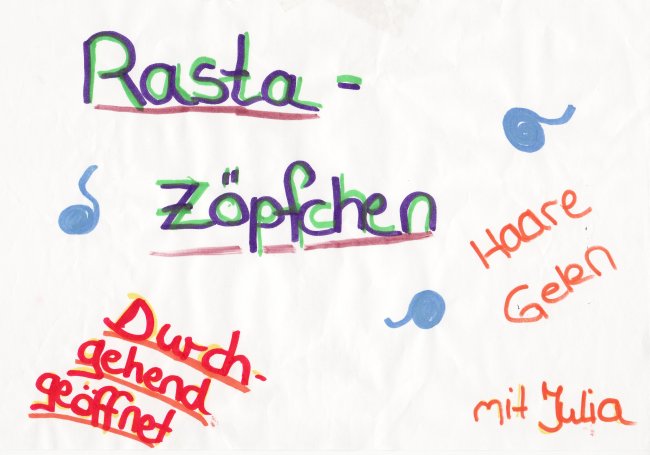 Rasta-
Zöpfchen
Haare
Gelen
Durch-
gehend
geöffnet
mit Julia